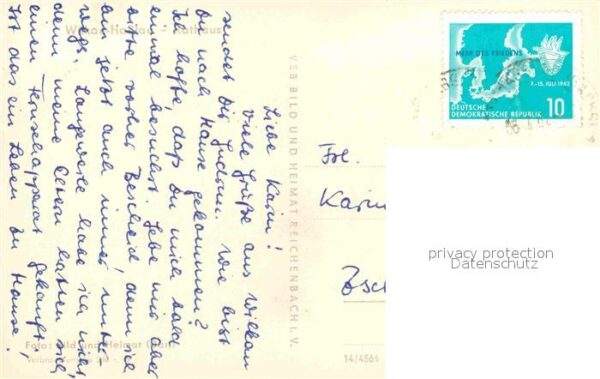 Liebe Karin!
Viele Grüße aus Wilkau
sendet Dir Gudrun. Wie bist
Du nach Hause gekommen?
Ich hoffe daß Du mich bald
einmal besuchst. Gebe mir aber
bitte vorher Bescheid, denn ich
bin jetzt auch immer unter-
wegs. Langeweile habe ich nicht,
denn meine Eltern hatten sich
einen Fernsehapparat gekauft.
Ist das ein Leben zu Hause!
Wilkau-Haßlau - Rathaus
Foto: Bild und Heimat
VEB BILD UND HEIMAT REICHENBACH i. V.
14/4566
MEER DES FRIEDENS
7.-15. JULI 1962
DEUTSCHE
DEMOKRATISCHE REPUBLIK
10
Frl.
Karin
privacy protection
Datenschutz